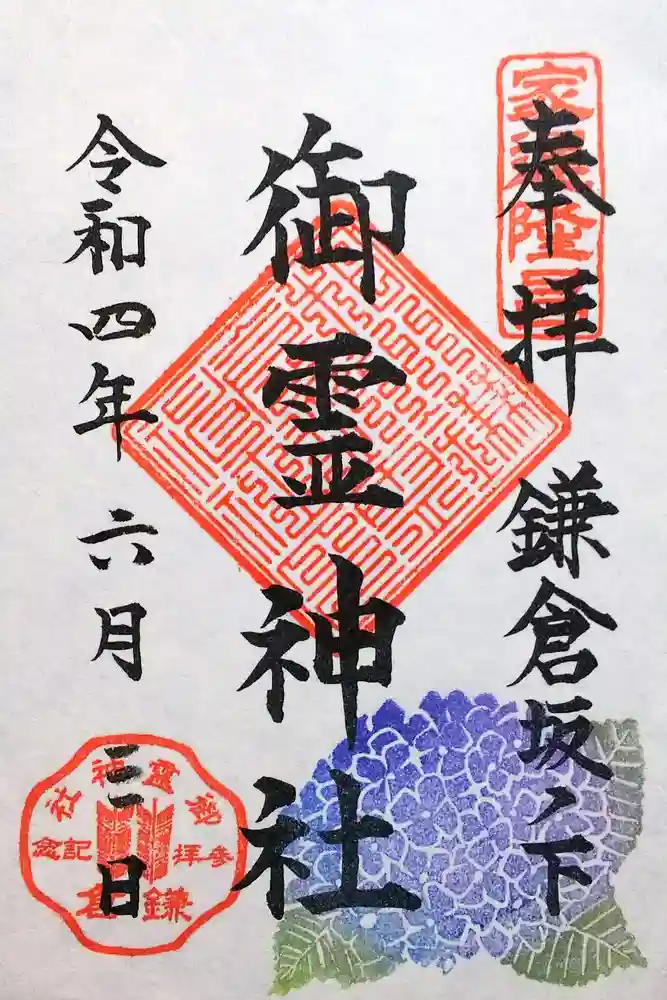 奉拝
鎌倉坂ノ下
御霊神社
令和四年六月三日
御霊神社
参拝記念
鎌倉